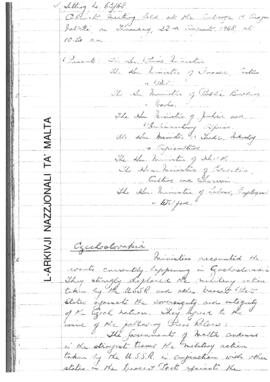 Sitting No. 63/68
Cabinet Meeting held at the Auberge d'Aragon
Valletta on Thursday, 22nd August 1968, at
10.20 am.
Present: The Hon. Prime Minister
The Hon Minister of Finance, Customs
+ Port
The Hon. Minister of Public Building
+ Works
The Hon. Minister of Justice and
Parliamentary Affairs
The Hon Minister of Trade, Industry
+ Agriculture
The Hon. Minister of Health
The Hon. Minister of Education,
Culture and Tourism
The Hon. Minister of Labour, Employment
+ Welfare
L-ARKIVJI NAZZJONALI TA' MALTA
Czechoslovakia
Ministers discussed the
events currently happening in Czechoslovakia.
They strongly deplored the military action
taken by the U.S.S.R. and other Warsaw Pact
States against the sovereignty and integrity
of the Czech nation. They agreed to the
issue of the following Press Release:
The Government of Malta condemns
in the strongest terms the military action
taken by the U.S.S.R. in conjunction with other
states in the Warsaw Pact against the